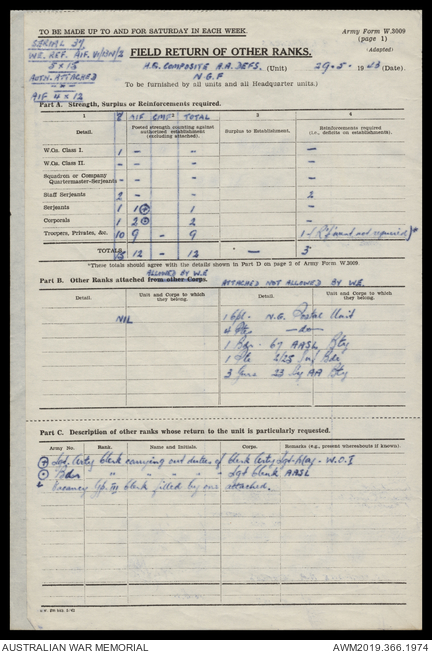 TO BE MADE UP TO AND FOR SATURDAY IN EACH WEEK.
Army Form W.3009
(page 1)
(Adapted)
SERIAL 39
WE. REF. AIF.
5 x 15
AUTH. ATTACHED
AIF 4 x 12
FIELD RETURN OF OTHER RANKS.
H.Q. COMPOSITE A.A. DEFS. (Unit) 29.5.1943 (Date).
N.G.F
To be furnished by all units and all Headquarter units.)
Part A. Strength, Surplus or Reinforcements required.
1 2 3 4
AIF CMF TOTAL
Detail.
Posted strength counting against authorized establishment (excluding attached).
Surplus to Establishment.
Reinforcements required (i.e., deficits on establishments).
W.Os. Class I. 1 - - -
W.Os. Class II. - - - -
Squadron or Company Quartermaster-Serjeants - - - -
Staff Serjeants 2 - - 2
Serjeants 1 1 1 -
Corporals 1 2 2 -
Troopers, Privates, &c. 10 9 - 9 1 (Rfmnt not required)*
TOTALS 15 12 - 12 - 3
*These totals should agree with the details shown in Part D on page 2 of Army Form W.3009.
ALLOWED BY W.E
Part B. Other Ranks attached from other Corps. ATTACHED NOT ALLOWED BY W.E.
Detail.
Unit and Corps to which they belong.
Detail.
Unit and Corps to which they belong.
NIL
1 Cpl. N.G. Postal Unit
4 Ptes -do-
1 Bdr. 67 AASL Bty
1 Pte 2/25
3 Gnrs 23 Hy AA Bty
Part C. Description of other ranks whose return to the unit is particularly requested.
Army No. Rank. Name and Initials. Corps. Remarks (e.g., present whereabouts if known).
Sgt. Arty Clerk carrying out duties of Clerk Arty Sgt-Maj. - W.O.I
Bdr " " " " " Sgt Clerk AASL
* Vacancy Gp. clerk filled by one attached.
AUSTRALIAN WAR MEMORIAL
AWM2019.366.1974